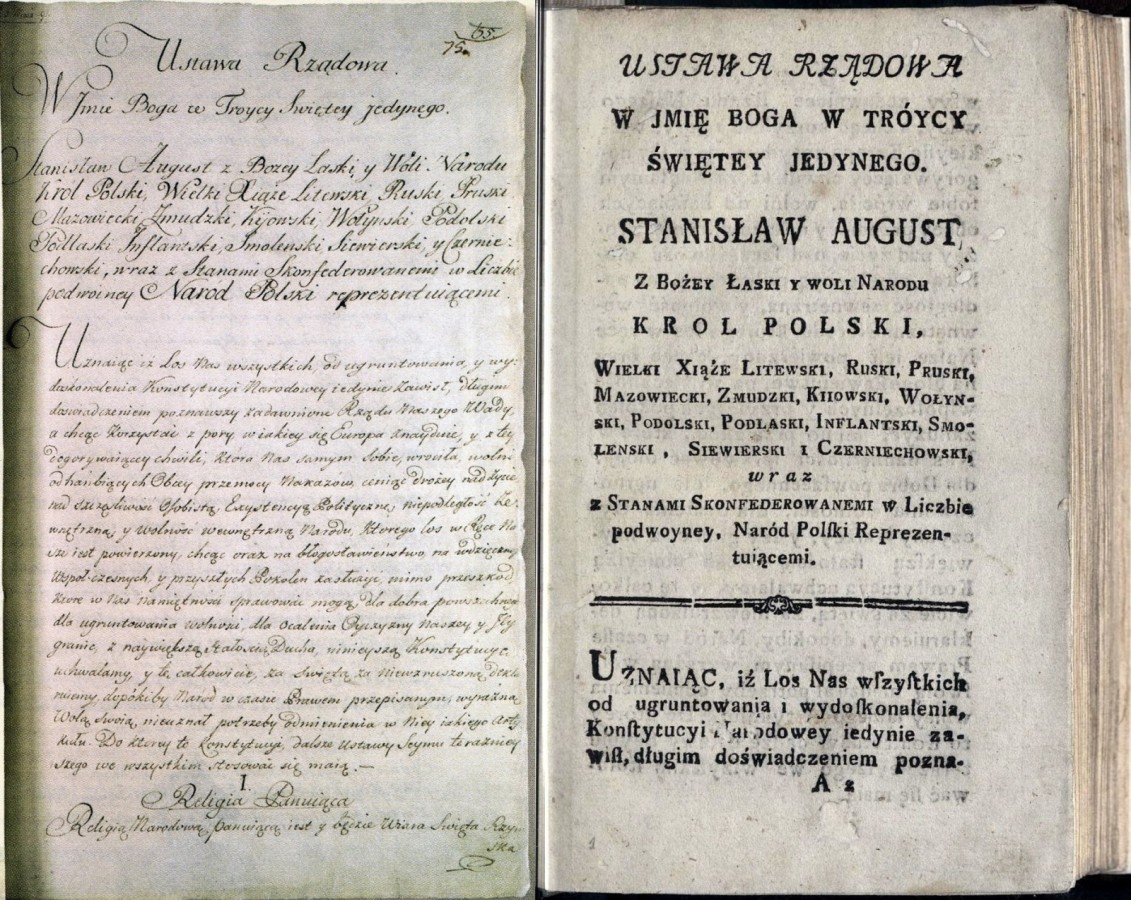 65.
75.
Ustawa Rządowa.
W Jmie Boga w Troycy Swiętey jedynego.
Stanisław August z Bozey Łaski, y Woli Narodu
Krol Polski, Wielki Xiąże Litewski, Ruski, Pruski
Mazowiecki, Zmudzki, Kyowski, Wołynski Podolski
Podlaski Inflantski, Smolenski Siewierski, y Czernie-
chowski, wraz z Stanami Skonfederowanemi w Liczbie
podwoyney Narod Polski reprezentuiącemi.
Uznaiąc iż Los Nas wszystkich, od ugruntowania, y wy-
doskonalenia Konstytucyi Narodowey iedynie zawisł, długim
doświadczeniem poznawszy zadawnione Rządu Naszego Wady,
a chcąc korzystać z pory w iakiey się Europa znayduie, y z tey
dogorywaiącey chwili, która Nas samym Sobie wrociła, wolni
od hanbiących Obcey przemocy Nakazow, ceniąc drożey nad życie,
nad szczęśliwość Osobistą, Exystencyą Polityczną, niepodległość Ze-
wnętrzną, y Wolność wewnętrzną Narodu, ktorego los w Ręce Na-
sze iest powierzony, chcąc oraz na błogosławieństwo, na wdzięczność
Wspołczesnych, y przyszłych Pokoleń zasłużyć, mimo przeszkod,
ktore w Nas namiętności sprawować mogą, dla dobra powszechnego
dla ugruntowania wolności, dla Ocalenia Oyczyzny Naszey y Jey
granic, z naywiększą Stałością Ducha, ninieyszą Konstytucyę
uchwalamy, y tę całkowicie, za Swiętą za Niewzruszoną dekla-
ruiemy, dopokiby Narod w czasie Prawem przepisanym, wyraźną
Wolą Swoią, nieuznał potrzeby odmienienia w Niey iakiego Arty-
kułu. Do ktorey to Konstytucyi, dalsze Ustawy Seymu teraznieyszego
szego we wszystkim stosować się maią.—
I.
Religia Panuiąca
Religią Narodową panuiącą iest y będzie Wiara Swięta Rzym-
ska
USTAWA RZĄDOWA
W JMIĘ BOGA W TRÓYCY
ŚWIĘTEY JEDYNEGO.
STANISŁAW AUGUST,
Z BOŻEY ŁASKI Y WOLI NARODU
KROL POLSKI,
WIELKI XIĄŻE LITEWSKI, RUSKI, PRUSKI,
MAZOWIECKI, ZMUDZKI, KIIOWSKI, WOŁYN-
SKI, PODOLSKI, PODLASKI, INFLANTSKI, SMO-
LENSKI, SIEWIERSKI I CZERNIECHOWSKI,
wraz
z STANAMI SKONFEDEROWANEMI w Liczbie
podwoyney, Naród Polſki Reprezen-
tuiącemi.
UZNAIĄC, iż Los Nas wſzyſtkich
od ugruntowania i wydoſkonalenia,
Konſtytucyi Narodowey iedynie za-
wiſł, długim doświadczeniem pozna-
A 2
1